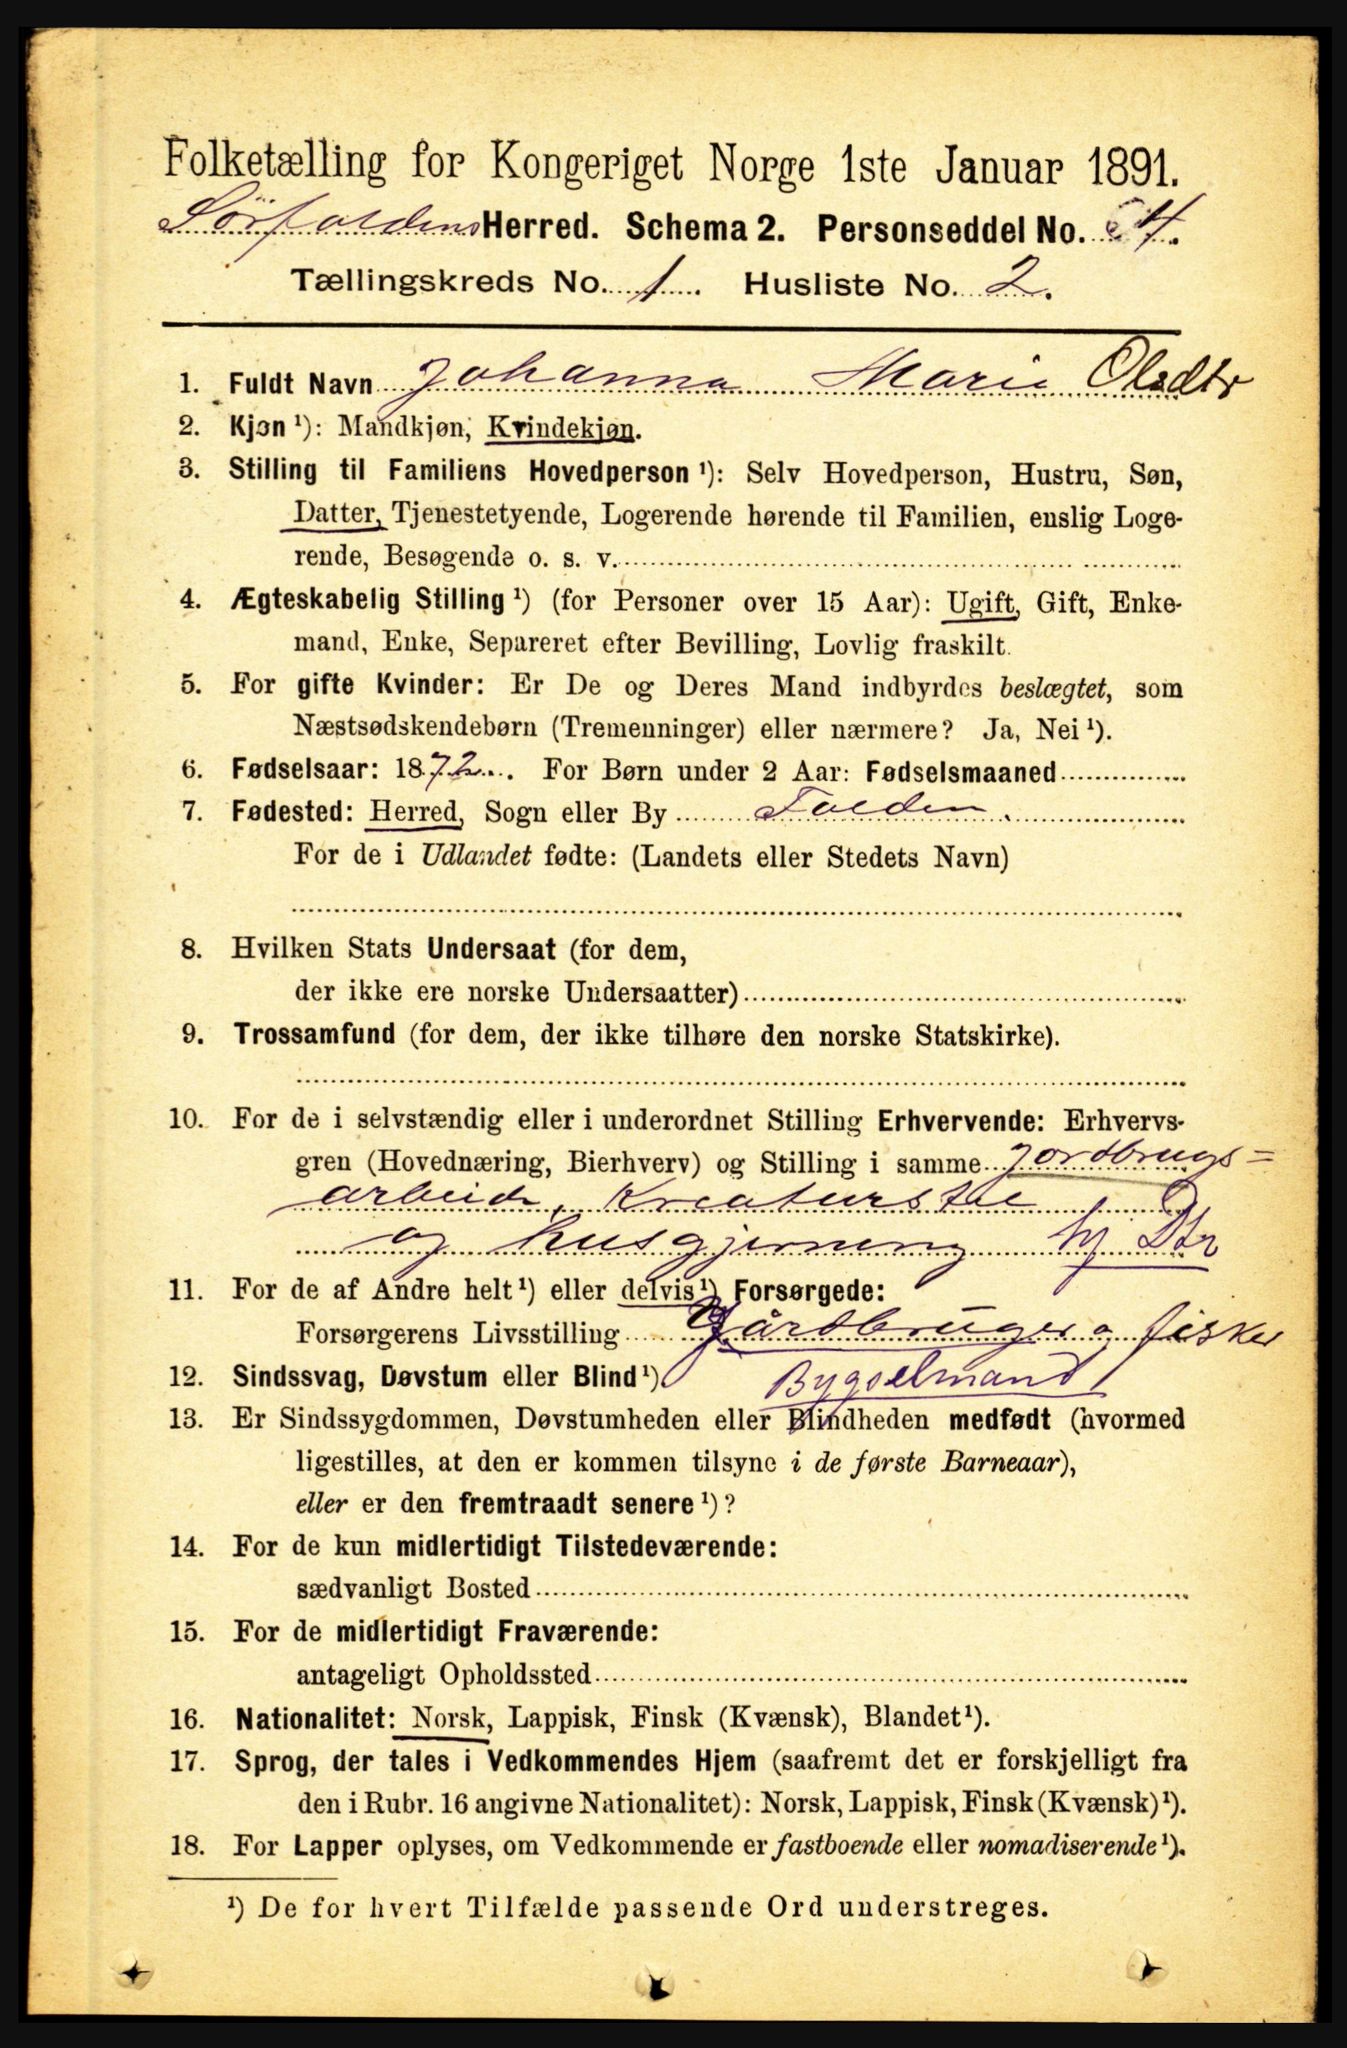 Folketælling for Kongeriget Norge 1ste Januar 1891.
Sørfoldens Herred. Schema 2. Personseddel No. 4.
Tællingskreds No. 1. Husliste No. 2.
1. Fuldt Navn Johanna Marie Olsdtr
2. Kjøn ¹): Mandkjøn, Kvindekjøn.
3. Stilling til Familiens Hovedperson ¹): Selv Hovedperson, Hustru, Søn,
Datter, Tjenestetyende, Logerende hørende til Familien, enslig Loge-
rende, Besøgende o. s. v.
4. Ægteskabelig Stilling ¹) (for Personer over 15 Aar): Ugift, Gift, Enke-
mand, Enke, Separeret efter Bevilling, Lovlig fraskilt.
5. For gifte Kvinder: Er De og Deres Mand indbyrdes beslægtet, som
Næstsødskendebørn (Tremenninger) eller nærmere? Ja, Nei ¹).
6. Fødselsaar: 1872. For Børn under 2 Aar: Fødselsmaaned
7. Fødested: Herred, Sogn eller By Folden.
For de i Udlandet fødte: (Landets eller Stedets Navn)
8. Hvilken Stats Undersaat (for dem,
der ikke ere norske Undersaatter)
9. Trossamfund (for dem, der ikke tilhøre den norske Statskirke).
10. For de i selvstændig eller i underordnet Stilling Erhvervende: Erhvervs-
gren (Hovednæring, Bierhverv) og Stilling i samme Jordbrugs=
arbeide, Kreaturstel
og husgjerning hj Dtr
11. For de af Andre helt ¹) eller delvis ¹) Forsørgede:
Forsørgerens Livsstilling Gårdbruger og fisker
12. Sindssvag, Døvstum eller Blind ¹). Bygselmand
13. Er Sindssygdommen, Døvstumheden eller Blindheden medfødt (hvormed
ligestilles, at den er kommen tilsyne i de første Barneaar),
eller er den fremtraadt senere ¹)?
14. For de kun midlertidigt Tilstedeværende:
sædvanligt Bosted
15. For de midlertidigt Fraværende:
antageligt Opholdssted
16. Nationalitet: Norsk, Lappisk, Finsk (Kvænsk), Blandet ¹).
17. Sprog, der tales i Vedkommendes Hjem (saafremt det er forskjelligt fra
den i Rubr. 16 angivne Nationalitet): Norsk, Lappisk, Finsk (Kvænsk) ¹).
18. For Lapper oplyses, om Vedkommende er fastboende eller nomadiserende ¹).
¹) De for hvert Tilfælde passende Ord understreges.